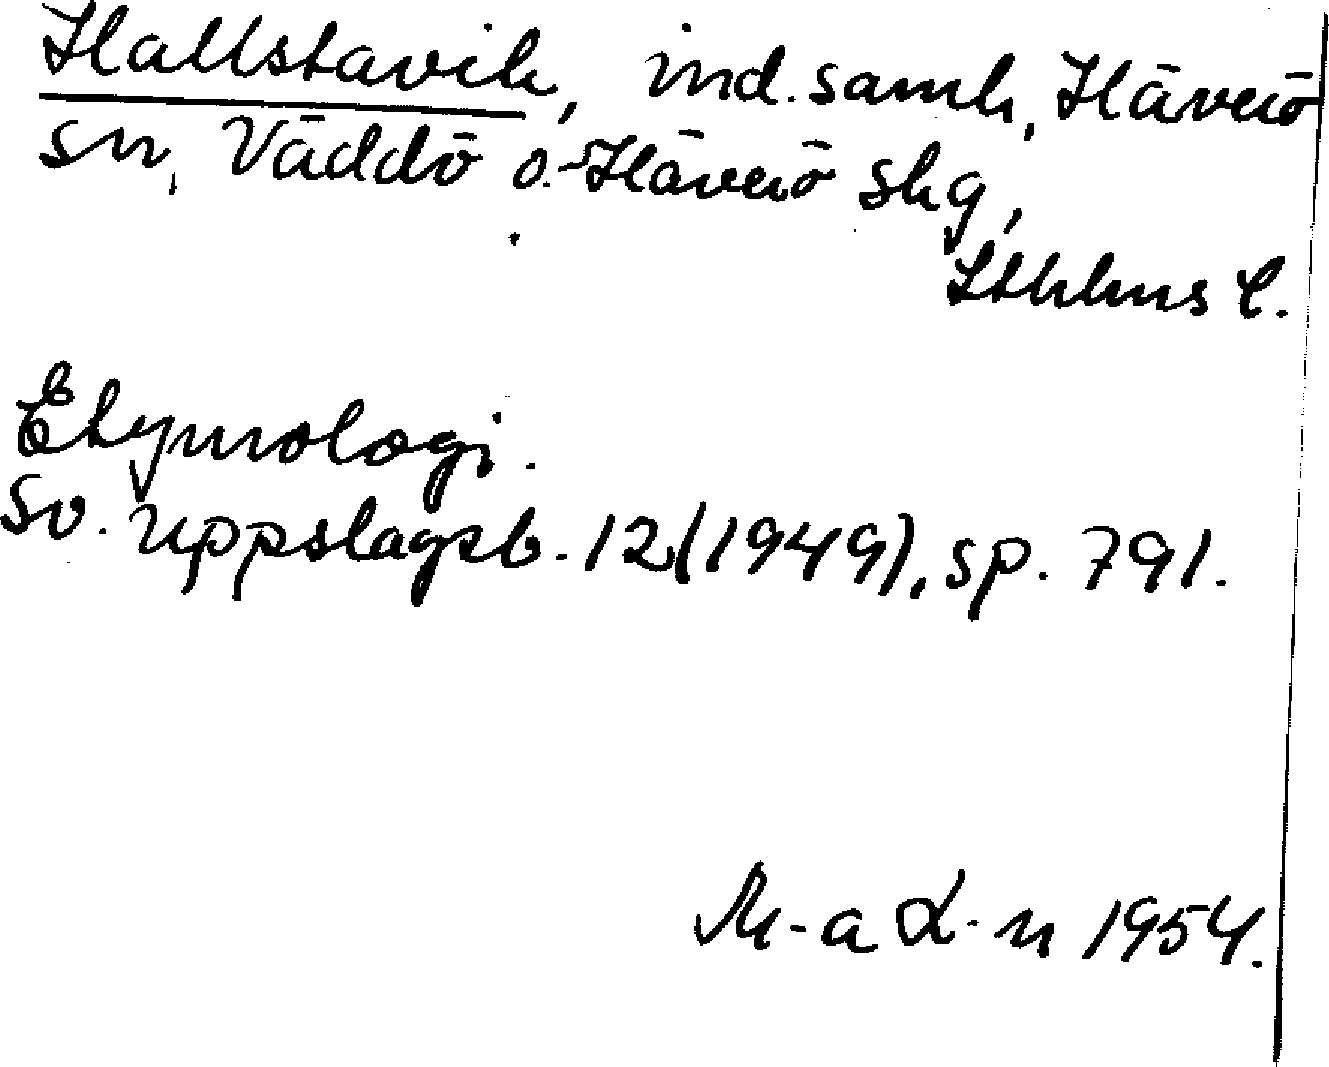 Hallstavik, ind.samh, Häverö
sn, Väddö o. Häverö skg,
Sthlms l.
Etymologi.
Sv. uppslagsb. 12(1949), sp. 791.
M-a L-n 1954.